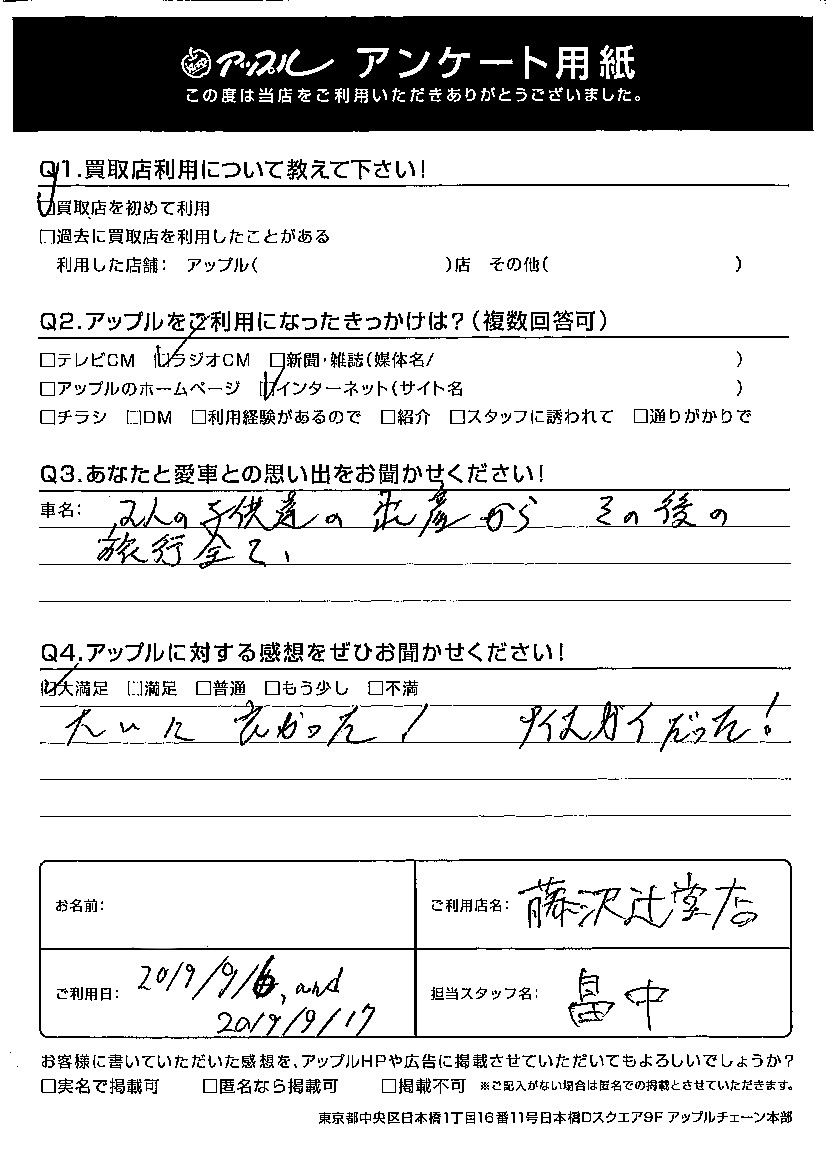 アップル アンケート用紙
この度は当店をご利用いただきありがとうございました。
Q1.買取店利用について教えて下さい!
☑買取店を初めて利用
□過去に買取店を利用したことがある
利用した店舗: アップル( )店 その他( )
Q2.アップルをご利用になったきっかけは?(複数回答可)
□テレビCM ☑ラジオCM □新聞・雑誌(媒体名/ )
□アップルのホームページ ☑インターネット(サイト名 )
□チラシ □DM □利用経験があるので □紹介 □スタッフに誘われて □通りがかりで
Q3.あなたと愛車との思い出をお聞かせください!
車名: 2人の子供達の出産から その後の
旅行全て、
Q4.アップルに対する感想をぜひお聞かせください!
☑大満足 □満足 □普通 □もう少し □不満
たいに 良かった! ナイスガイだった!
お名前:
ご利用店名: 藤沢辻堂店
ご利用日: 2019/9/16, and
2019/9/17
担当スタッフ名: 畠中
お客様に書いていただいた感想を、アップルHPや広告に掲載させていただいてもよろしいでしょうか?
□実名で掲載可 □匿名なら掲載可 □掲載不可 ※ご記入がない場合は匿名での掲載とさせていただきます。
東京都中央区日本橋1丁目16番11号日本橋Dスクエア9F アップルチェーン本部